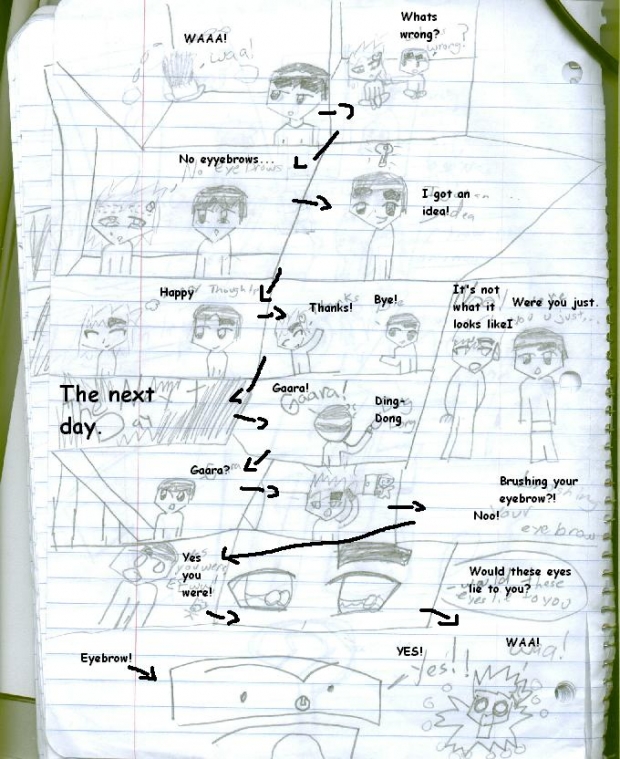 WAAA!
waa!
Whats
wrong?
wrong?
No eyyebrows...
No eyebrows
I got an
idea!
idea
Happy
Thought
Thanks!
Bye!
It's not
what it
looks likeI
Were you just.
you just...
The next
day.
Gaara!
Gaara!
Ding-
Dong
Gaara?
Brushing your
eyebrow?!
Noo!
eyebrow
Yes
you
were!
Would these eyes
lie to you?
would these
eyes lie to you
Eyebrow!
YES!
Yes!!
WAA!
waa!